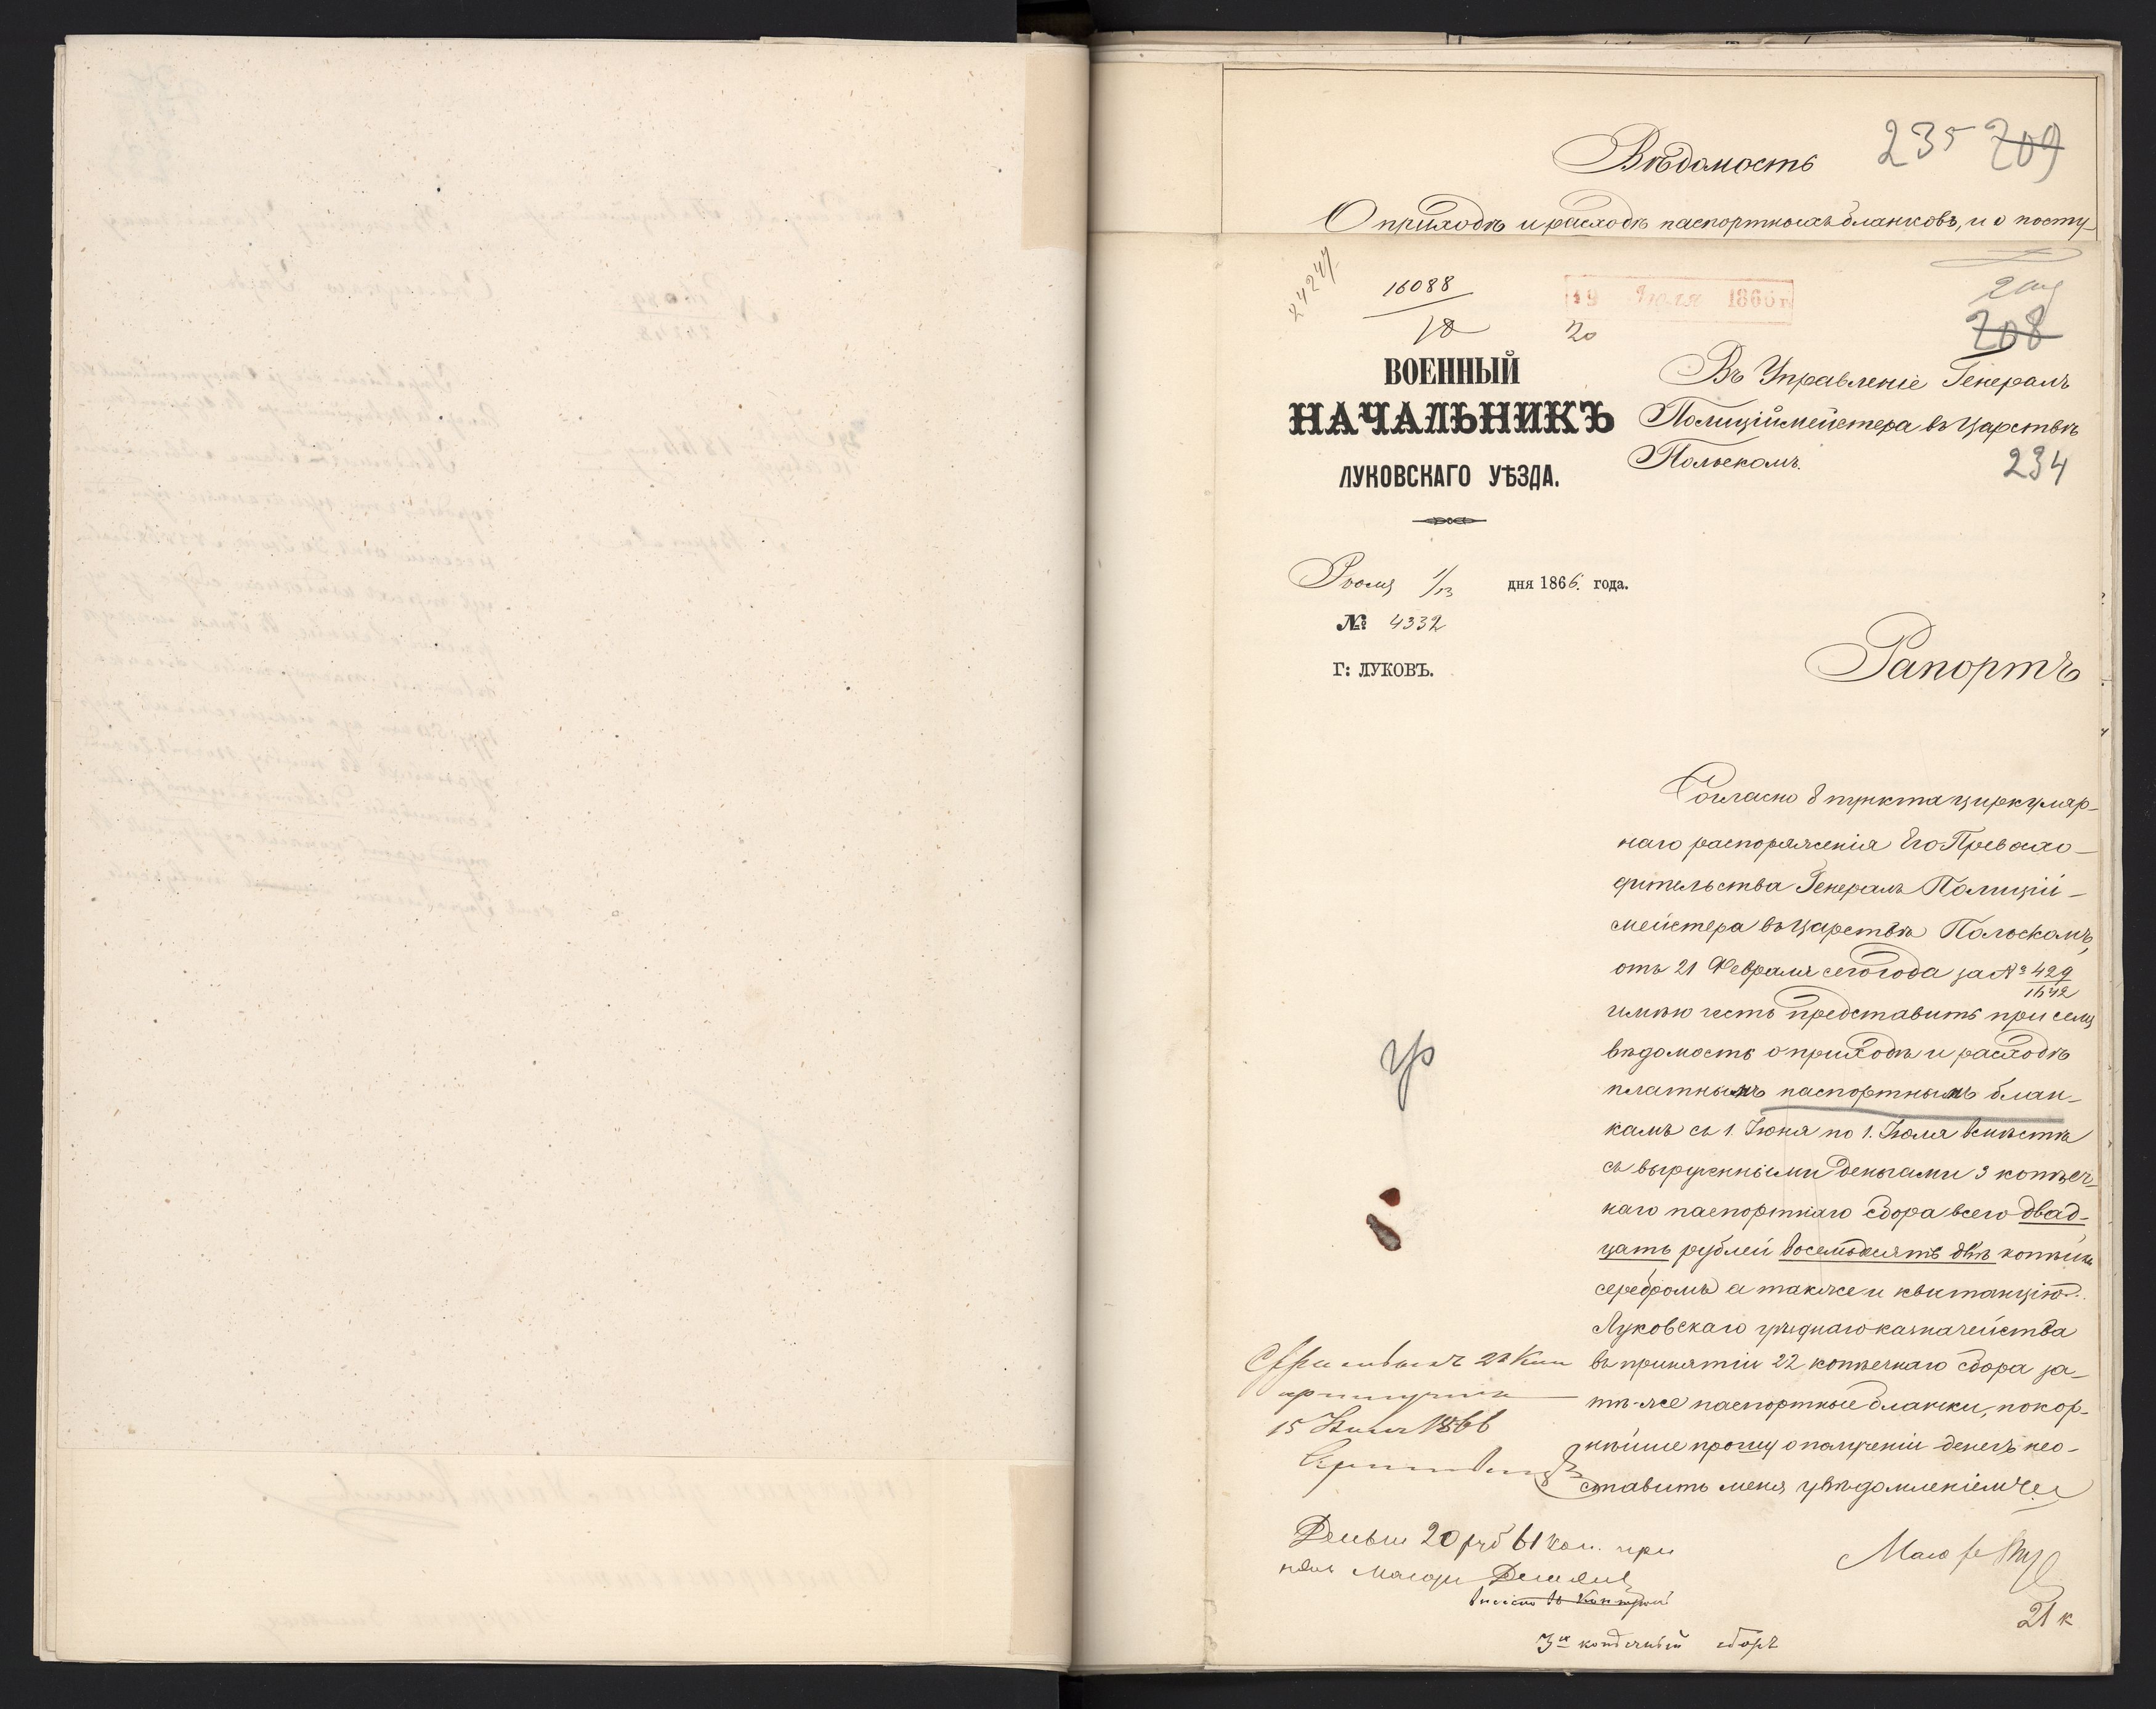 Вѣдомость
235 709
О приходѣ и расходѣ паспортныхъ бланковъ, и о посту-
24247
16088
18
19 Июля 1866 г.
20
708
ВОЕННЫЙ
НАЧАЛЬНИКЪ
ЛУКОВСКАГО УѢЗДА.
Въ Управленіе Генералъ
Полиціймейстера въ Царствѣ
Польскомъ.
234
Іюля 1/13 дня 1866. года.
№ 4332
Г: ЛУКОВЪ.
Рапортъ
Согласно 8 пункта циркуляр-
наго распоряженія Его Превосхо-
дительства Генералъ Полицій-
мейстера въ Царствѣ Польскомъ,
отъ 21 Февраля сего года за № 429
1642
имѣю честь представить при семъ
вѣдомость о приходѣ и расходѣ
платнымъ паспортнымъ блан-
камъ съ 1. Іюня по 1. Іюля вмѣстѣ
съ вырученными деньгами 3 копѣеч-
наго паспортнаго сбора всего двад-
цать рублей восемьдесятъ двѣ копѣйки
серебромъ а также и квитанцію
Луковскаго уѣзднаго казначейства
въ принятіи 22 копѣечнаго сбора за
тѣ-же паспортные бланки, покор-
нѣйше прошу о полученіи денегъ не о-
ставить меня увѣдомленіемъ.
15 Июля 1866
Деньги 20 руб 61 коп. при
нялъ Маіоръ
Маіоръ
21 к
3х копѣечный сборъ